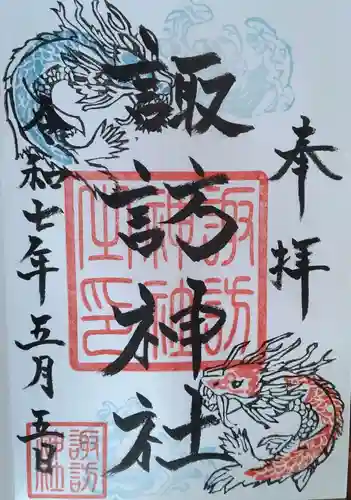 奉拝
諏訪神社
令和七年五月五日
諏訪神社
諏訪